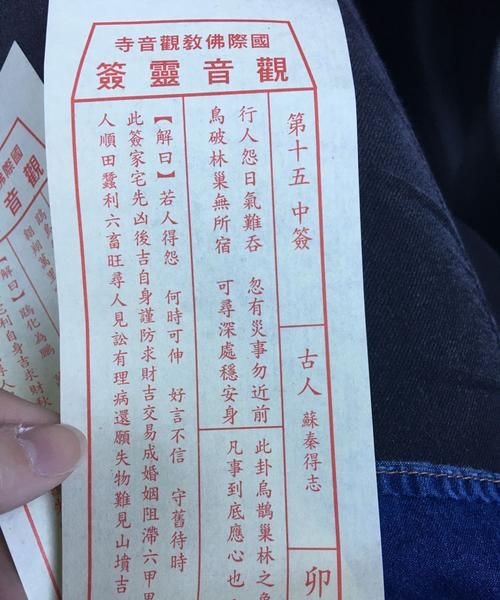 國際佛教觀音寺
觀音靈簽
第十五中簽
古人 蘇秦得志
卯
行人怨日氣難吞 忽有災事勿近前
鳥破林巢無所宿 可尋深處穩安身
此卦烏鵲巢林之象
凡事到底應心也
【解曰】若人得怨 何時可伸 好言不信 守舊待時
此簽家宅先凶後吉自身謹防求財吉交易成婚姻阻滯六甲
人順田蠶利六畜旺尋人見訟有理病還願失物難見山墳吉
國際佛
觀音
翔萬
【解曰】鵬化為鵬
利自身吉求財秋